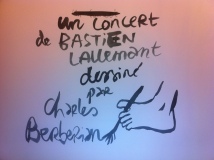 un concert
de BASTiEN
LALLEMANT
dessiné
par
Charles
Berberian